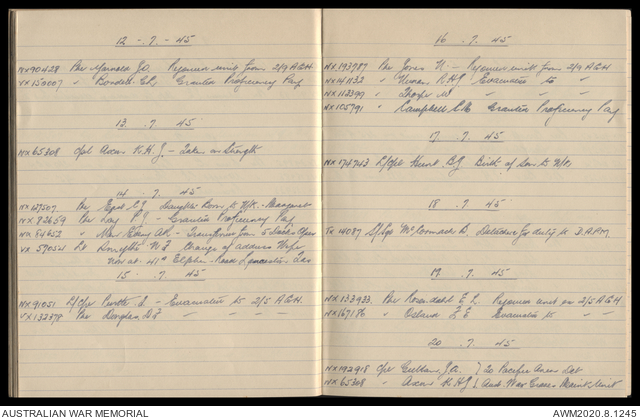 12 - . 7. - 45
NX90428 Pte Marnold J.A. Rejoined unit from 2/9 A.G.H
VX150007 " Bondett C.L. Granted Proficiency Pay
13 . 7. 45
NX65308 Cpl Axam K.H.J. - Taken on Strength
14 . 7. 45
NX127507 Pte C.J. Daughter Born to W/K. - Margaret
NX.82659 Pte Lay P.J. - Granted Proficiency Pay
NX84652 " A.K. - Transferred from 5
VX57054 Lt Smyth W.J. Change of address Wife
Now at 41A Elphin Road Launceston Tas
15 . 7. 45
NX91051 L/Cpl - Evacuated to 2/5 A.G.H.
VX132378 Pte Douglas D.J. - " - " -
16 . 7. 45
NX193787 Pte Jones N. - Rejoined unit from 2/9 A.G.H
NX141132 " K.H.J. Evacuated to " "
NX113399 " Thorpe W " " " "
NX105791 " Campbell C.B. Granted Proficiency Pay
17 . 7. 45
NX174743 L/Cpl Hunt B.J. Birth of Son to W/K.
18 . 7. 45
TX 14087 S/Sgt McCormack D. for duty to D.A.P.M.
19 . 7. 45
NX133933. Pte Rosendahl E.L. Rejoined unit ex 2/5 A.G.H
NX167186 " Osland L.E. Evacuated to " "
20 . 7. 45
NX192918 Cpl J.A. } 20 Pacific Area Det
NX65308 " Axam K.H.J. } Aust War Graves Maint Unit
AUSTRALIAN WAR MEMORIAL
AWM2020.8.1245